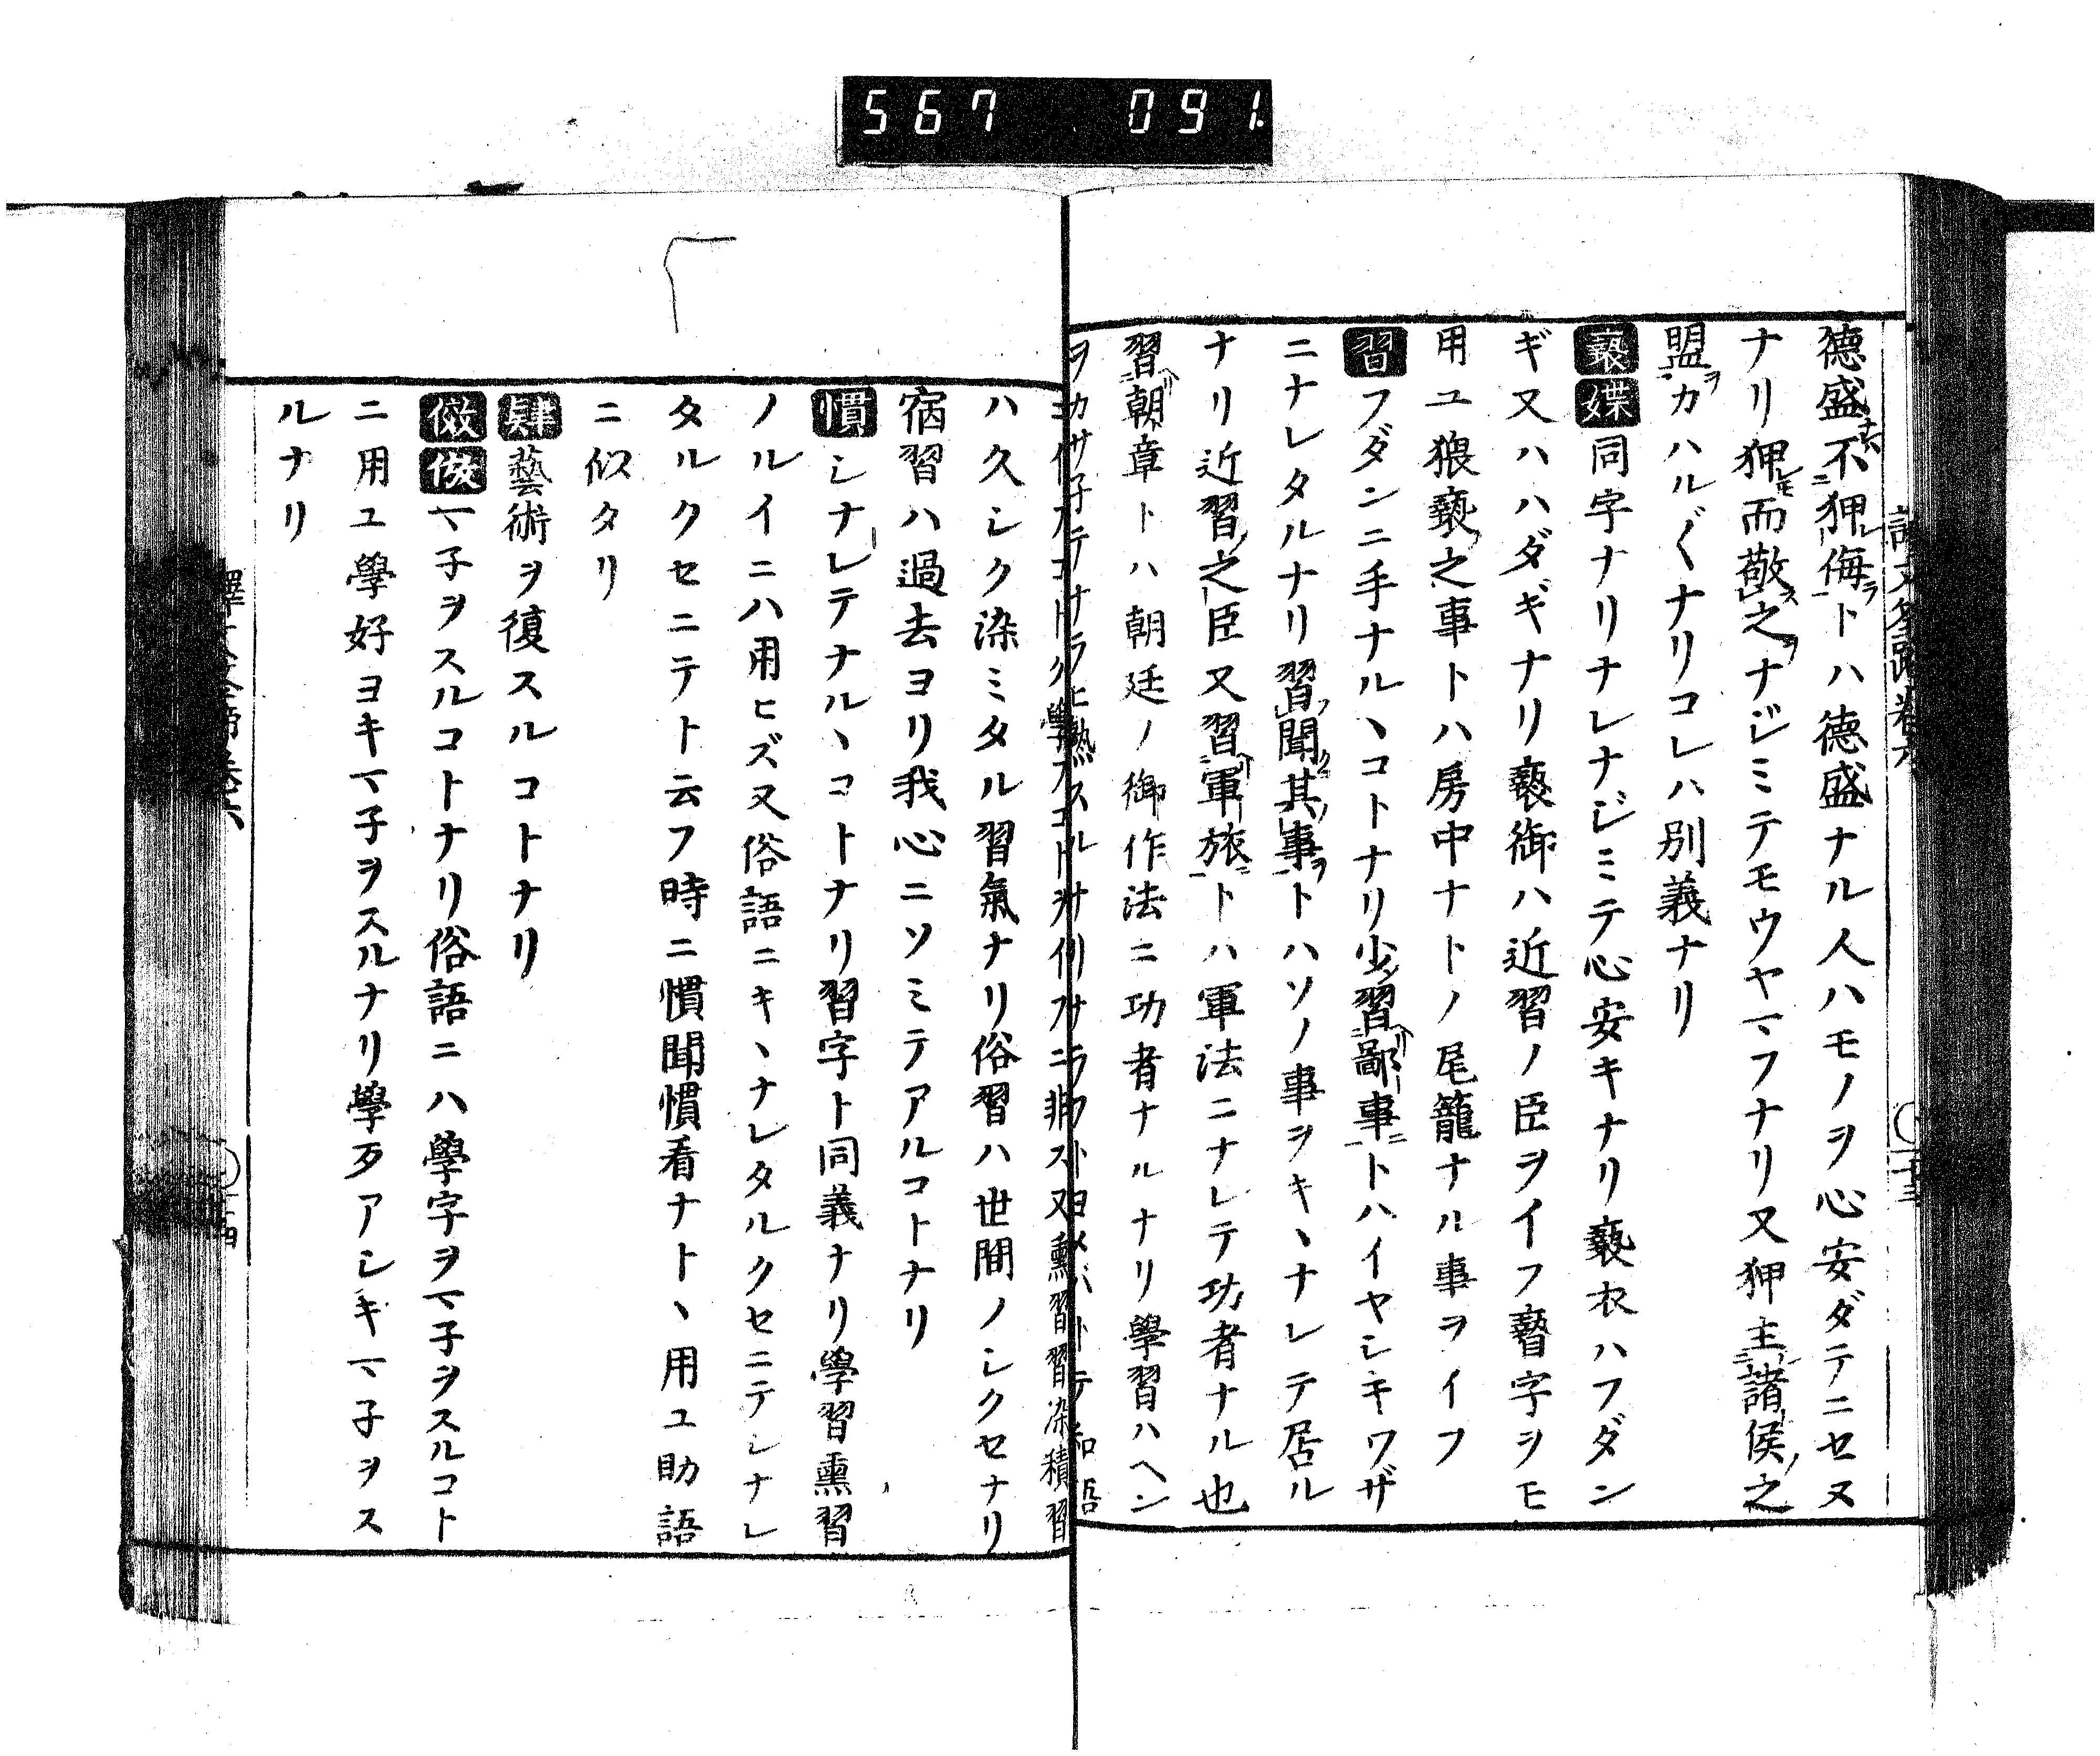 567 091
德盛不狎侮トハ德盛ナル人ハモノヲ心安ダテニセヌ
ナリ狎而敬之ナジミテモウヤマフナリ又狎主諸侯之
盟カハル〲ナリコレハ別義ナリ
褻媟同字ナリナレナジミテ心安キナリ褻衣ハフダン
ギ又ハハダギナリ褻御ハ近習ノ臣ヲイフ暬字ヲモ
用ユ猥褻之事トハ房中ナトノ尾籠ナル事ヲイフ
習フダンニ手ナルヽコトナリ少習鄙事トハイヤシキワザ
ニナレタルナリ習聞其事トハソノ事ヲキヽナレテ居ル
ナリ近習之臣又習軍旅トハ軍法ニナレテ功者ナル也
習朝章トハ朝廷ノ御作法ニ功者ナルナリ學習ハヘン
ハ久シク染ミタル習氣ナリ俗習ハ世間ノシクセナリ
宿習ハ過去ヨリ我心ニソミテアルコトナリ
慣シナレテナルヽコトナリ習字ト同義ナリ學習熏習
ノルイニハ用ヒズ又俗語ニキヽナレタルクセニテシナレ
タルクセニテト云フ時ニ慣聞慣看ナトヽ用ユ助語
ニ似タリ
肄藝術ヲ復スルコトナリ
倣傚マ子ヲスルコトナリ俗語ニハ學字ヲマ子ヲスルコト
ニ用ユ學好ヨキマ子ヲスルナリ學歹アシキマ子ヲス
ルナリ